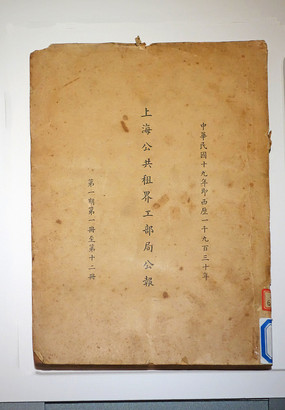 中華民國十九年即西歷一千九百三十年
上海公共租界工部局公報
第一期第一冊至第十二冊